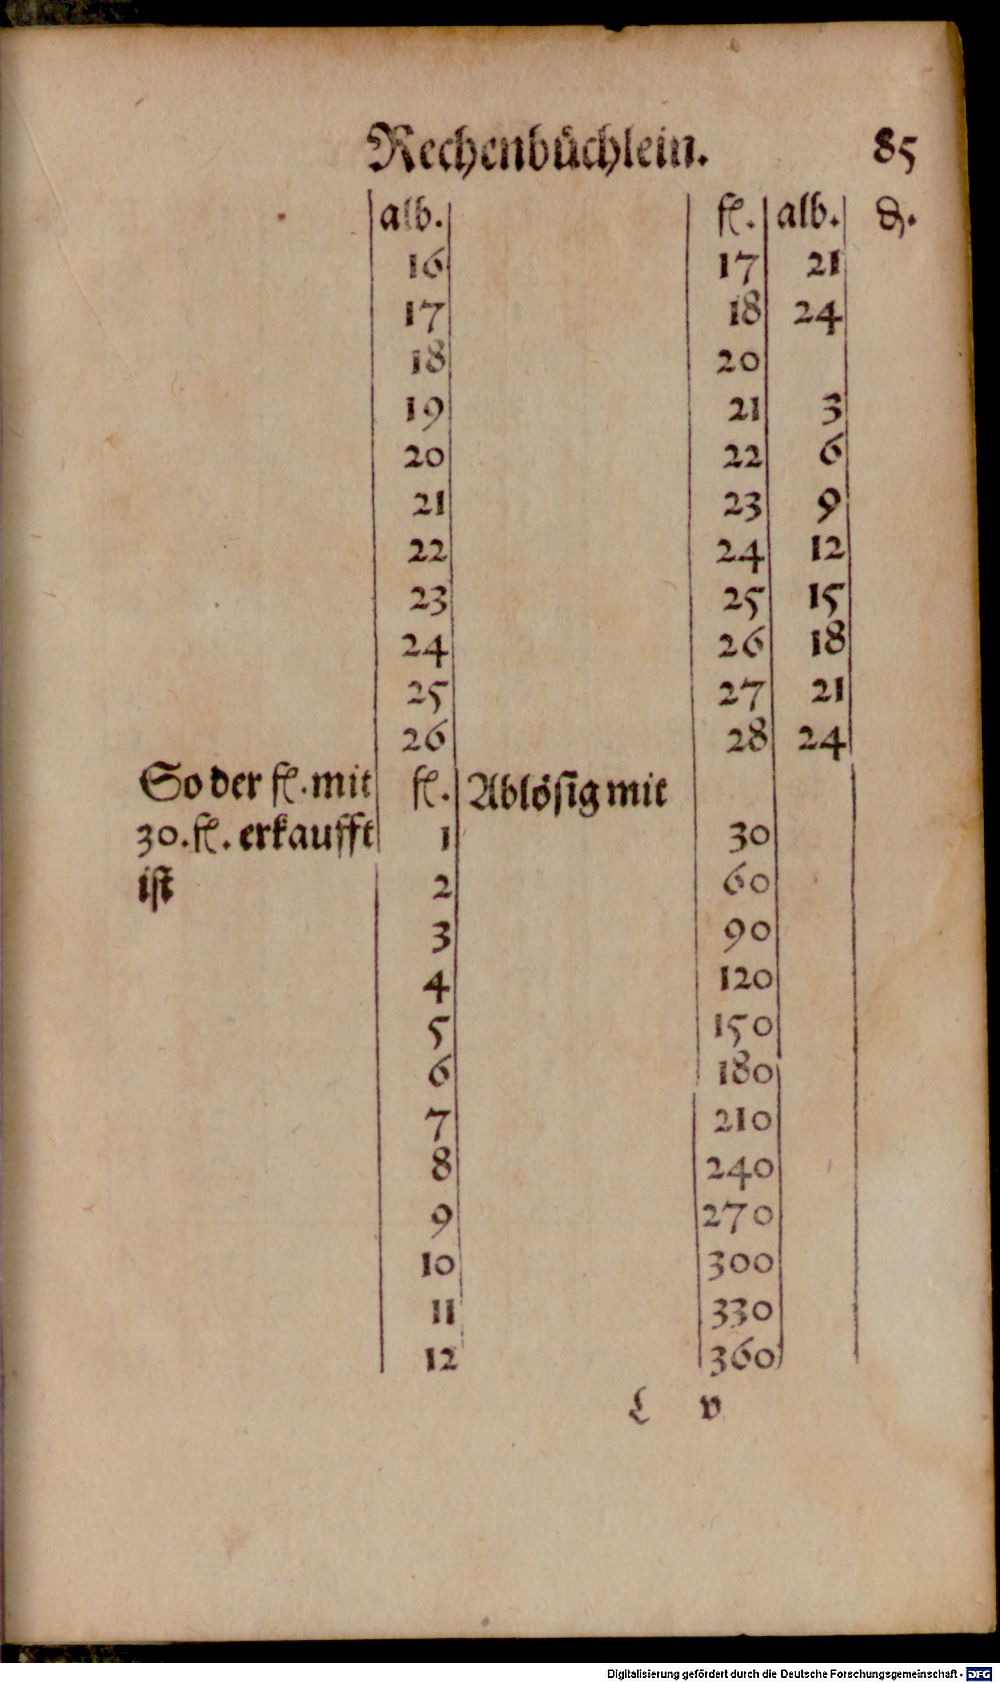 Rechenbüchlein. 85
alb. fl. alb. ₰.
16 17 21
17 18 24
18 20
19 21 3
20 22 6
21 23 9
22 24 12
23 25 15
24 26 18
25 27 21
26 28 24
So der fl. mit fl. Ablösig mit
30. fl. erkaufft 1 30
ist 2 60
3 90
4 120
5 150
6 180
7 210
8 240
9 270
10 300
11 330
12 360
L v
Digitalisierung gefördert durch die Deutsche Forschungsgemeinschaft - DFG